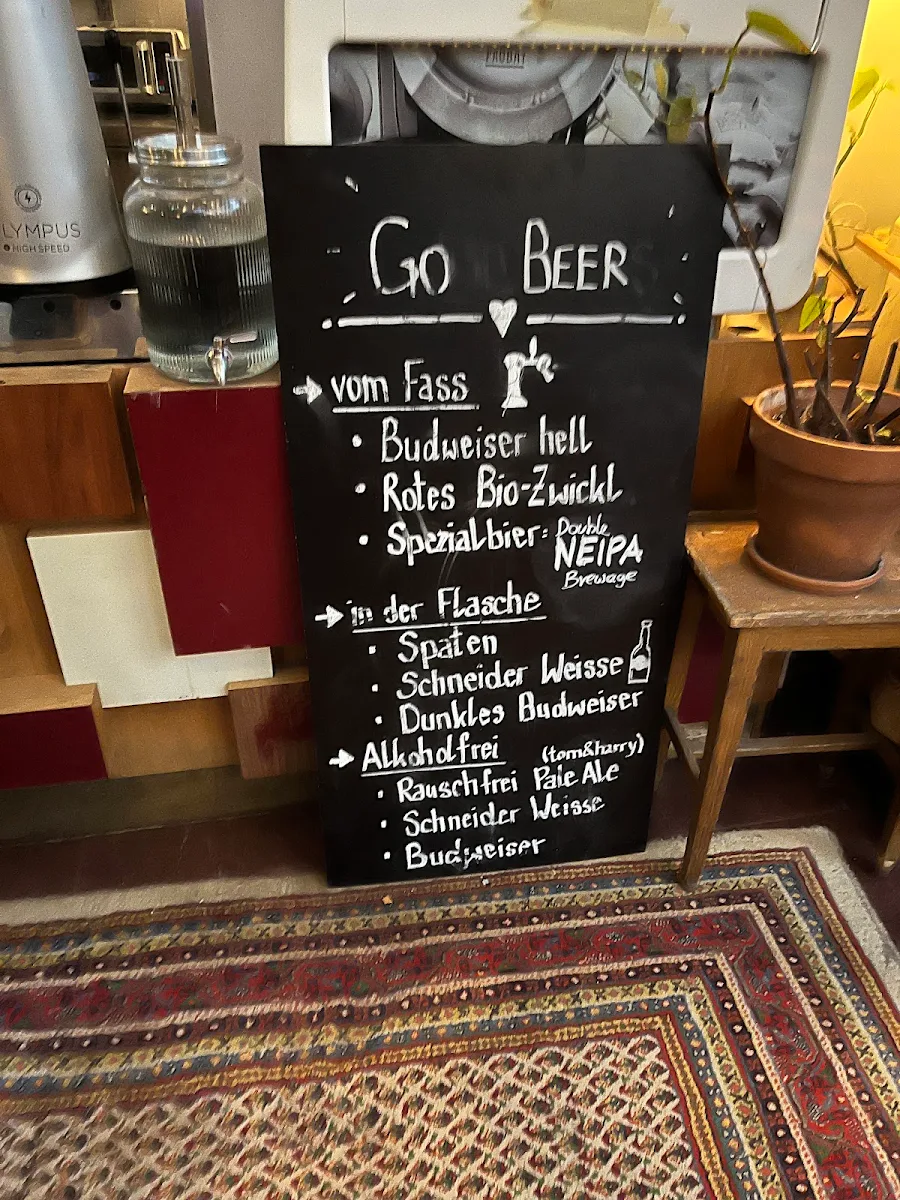 PROBAT
LYMPUS
HIGH SPEED
Go BEER
vom Fass
• Budweiser hell
• Rotes Bio-Zwickl
• Spezialbier: Double
NEIPA
Brewage
in der Flasche
• Spaten
• Schneider Weisse
• Dunkles Budweiser
Alkoholfrei (tom&harry)
• Rauschfrei Pale Ale
• Schneider Weisse
• Budweiser